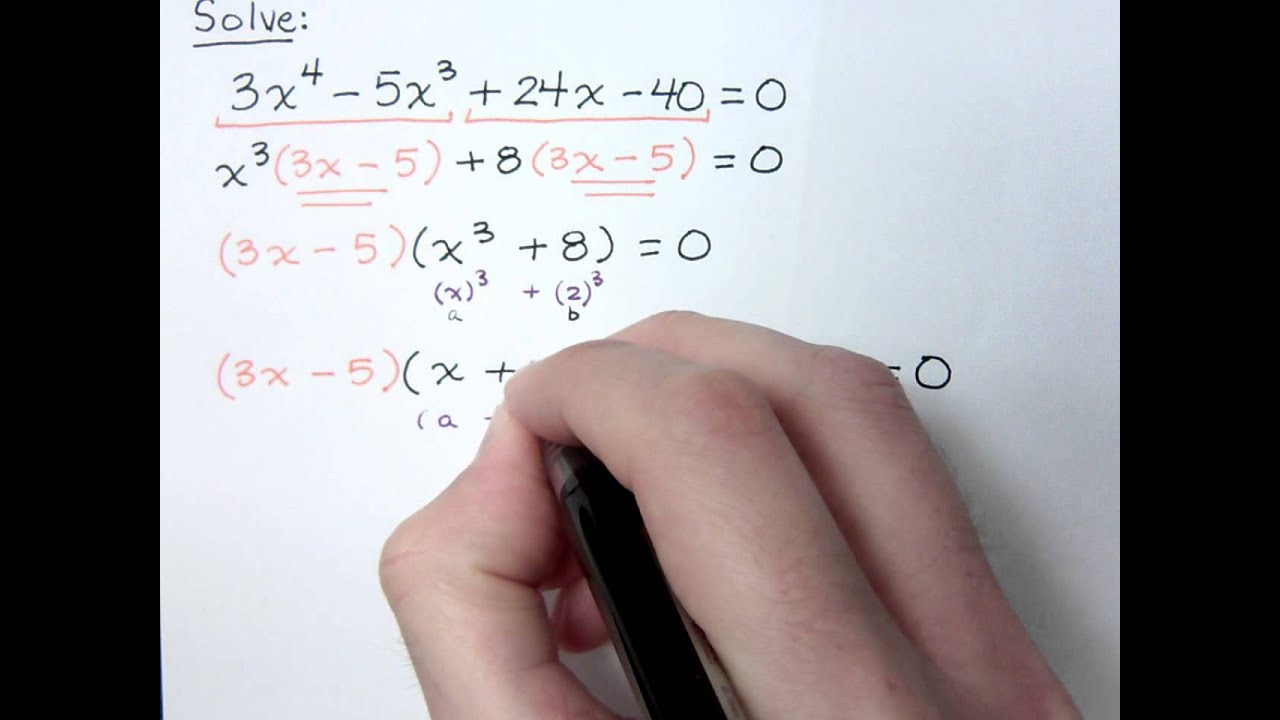 Solve:
3x⁴ - 5x³ + 24x - 40 = 0
x³(3x - 5) + 8(3x - 5) = 0
(3x - 5)(x³ + 8) = 0
(x)³ + (2)³
a b
(3x - 5)(x + = 0
(a